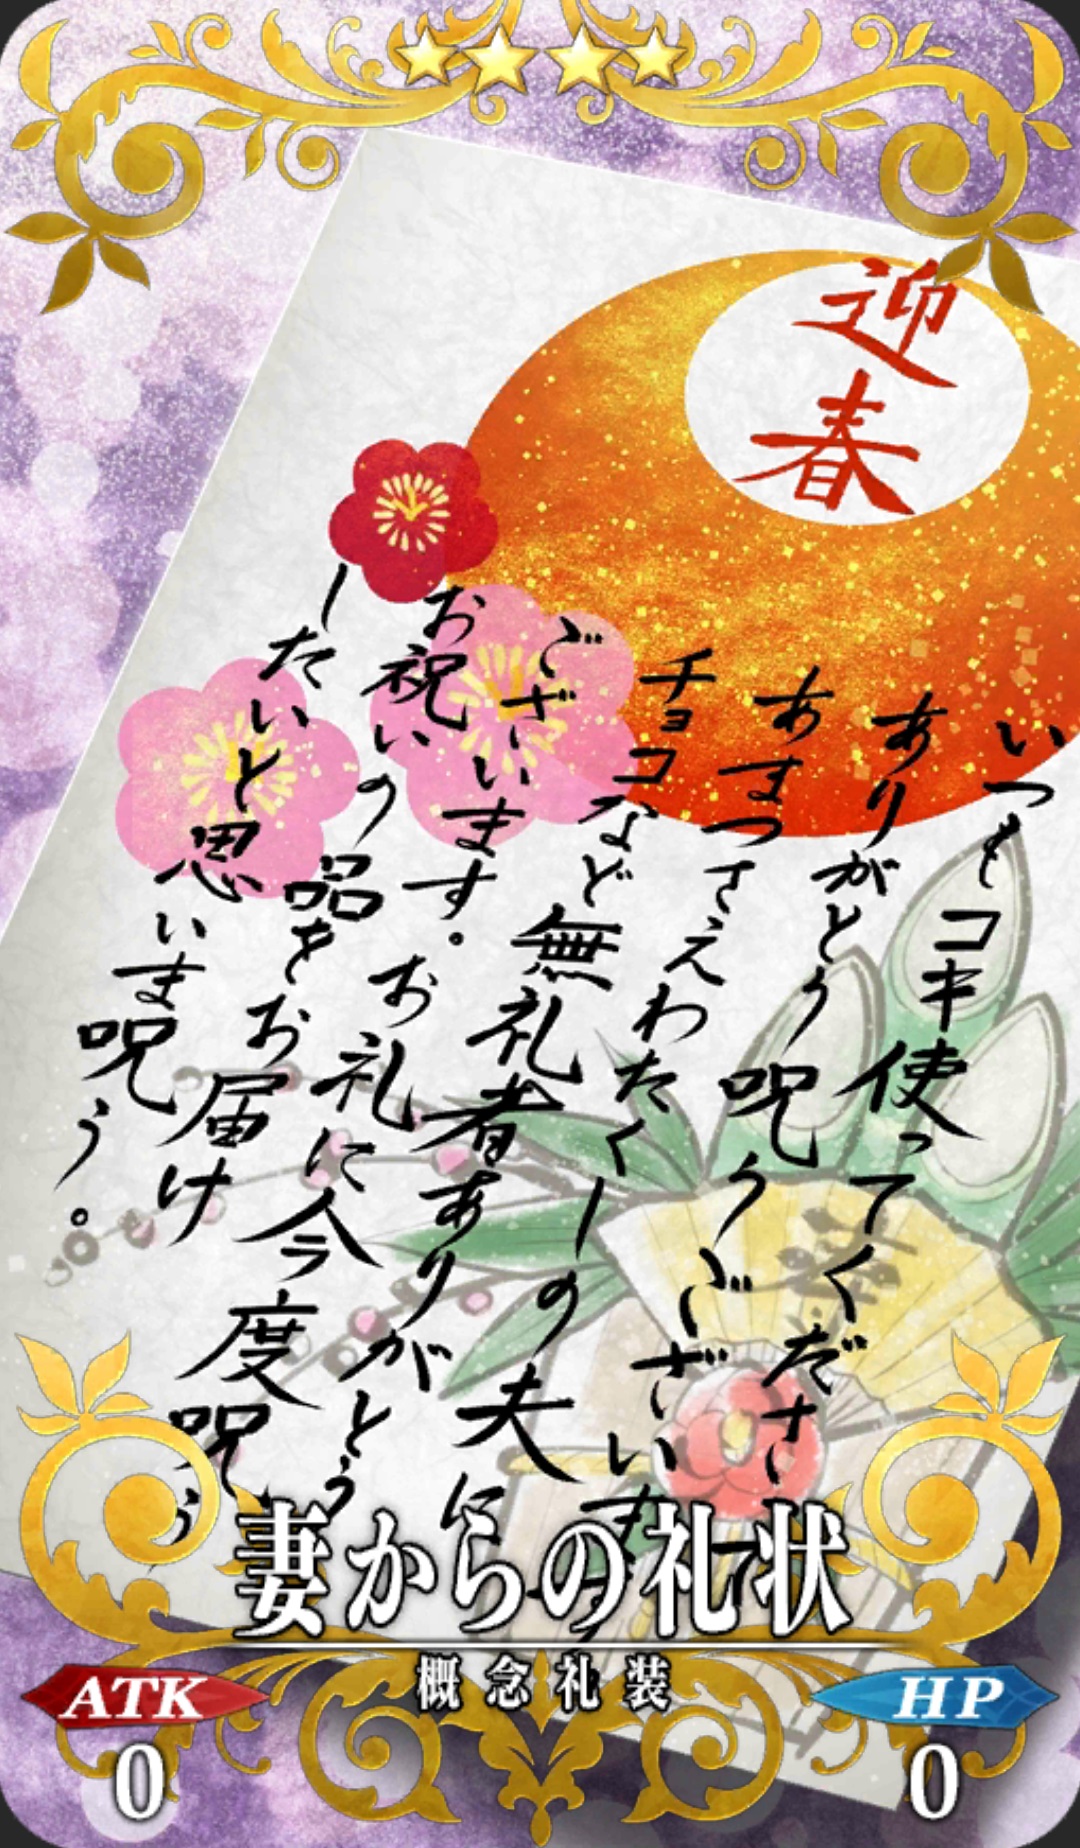 迎春
いつもコキ使ってくださ
ありがとう呪うございます
あまつさえわたくしの夫に
チョコなど無礼者ありがとう
ございます。お礼に今度呪う
お祝いの品をお届け
したいと思いま呪う。
妻からの礼状
概念礼装
ATK
0
HP
0